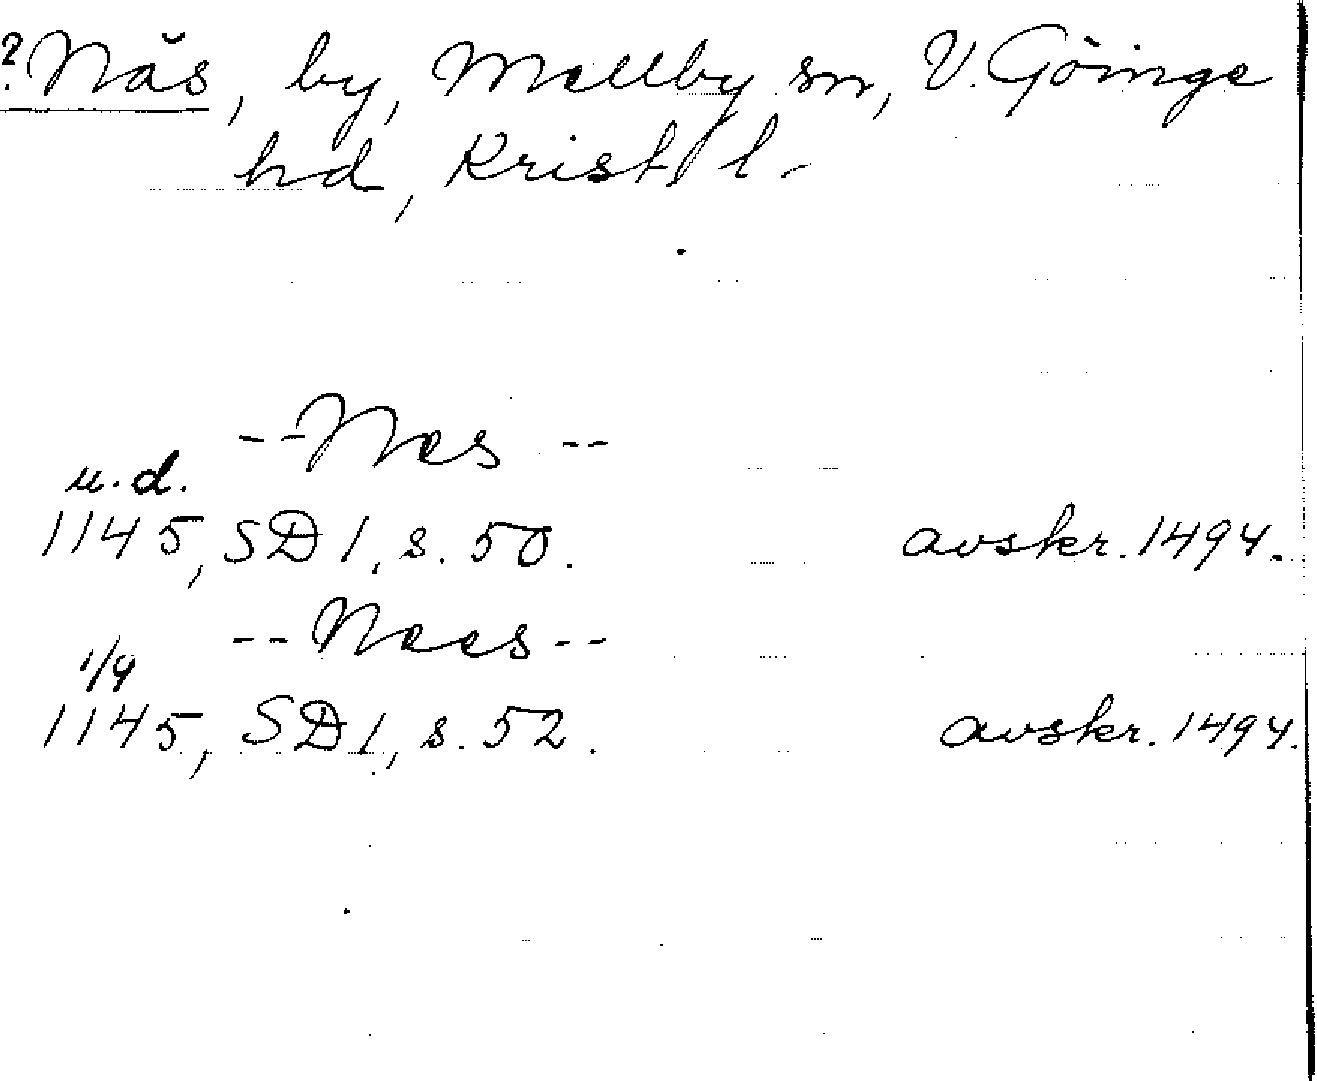 ? Näs, by, Mellby sn, V. Göinge
hd, Krist. l.
-- Nes --
u.d.
1145, SD 1, s. 50. avskr. 1494.
-- Nees --
1/9
1145, SD 1, s. 52. avskr. 1494.